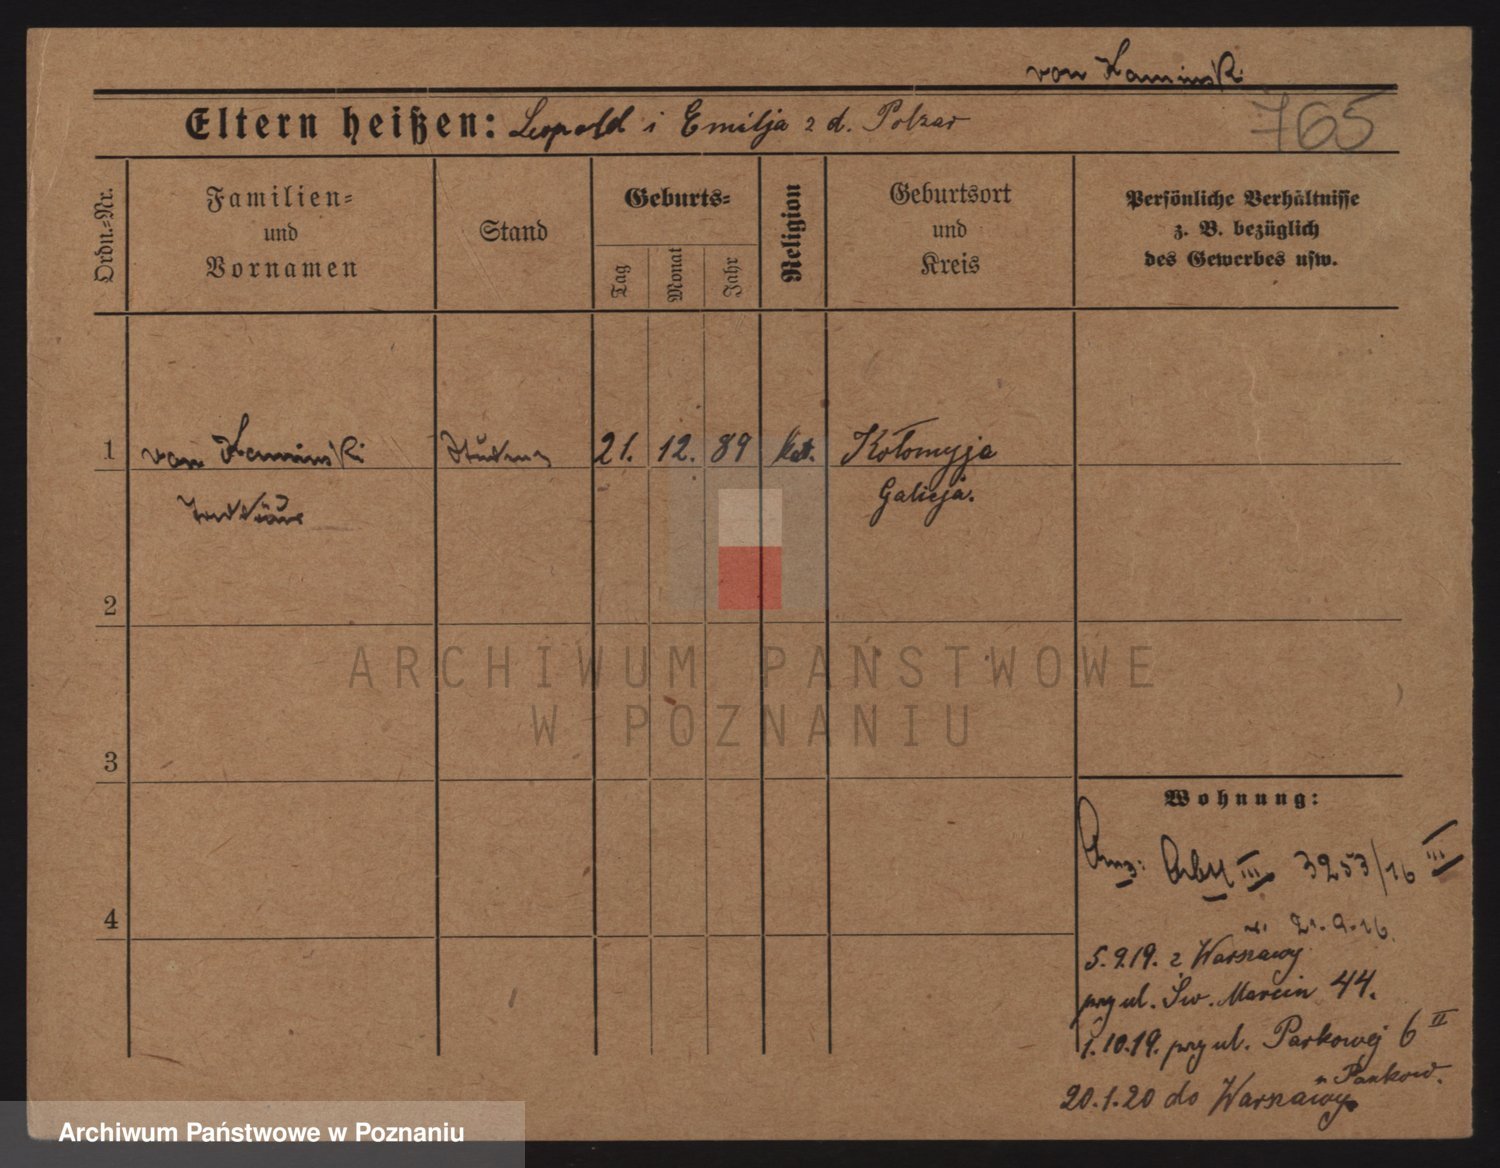 von Kaminski
765
Eltern heißen: Leopold i Emilja z d. Polzar
Ordn.-Nr.
Familien-
und
Vornamen
Stand
Geburts-
Tag
Monat
Jahr
Religion
Geburtsort
und
Kreis
Persönliche Verhältnisse
z. B. bezüglich
des Gewerbes usw.
1
von Kaminski
Student
21. 12. 89
kat.
Kołomyja
Galicja.
2
3
4
Wohnung:
III 3253/16 III
21.9.16.
5.9.19. z Warszawy
przy ul. Św. Marcin 44.
1.10.19. przy ul. Parkowej 6 II
20.1.20 do Warszawy
ARCHIWUM PAŃSTWOWE
W POZNANIU
Archiwum Państwowe w Poznaniu